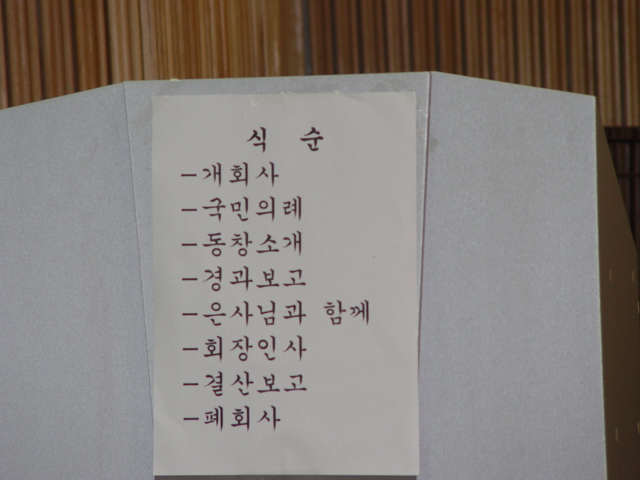 식 순
-개회사
-국민의례
-동창소개
-경과보고
-은사님과 함께
-회장인사
-결산보고
-폐회사